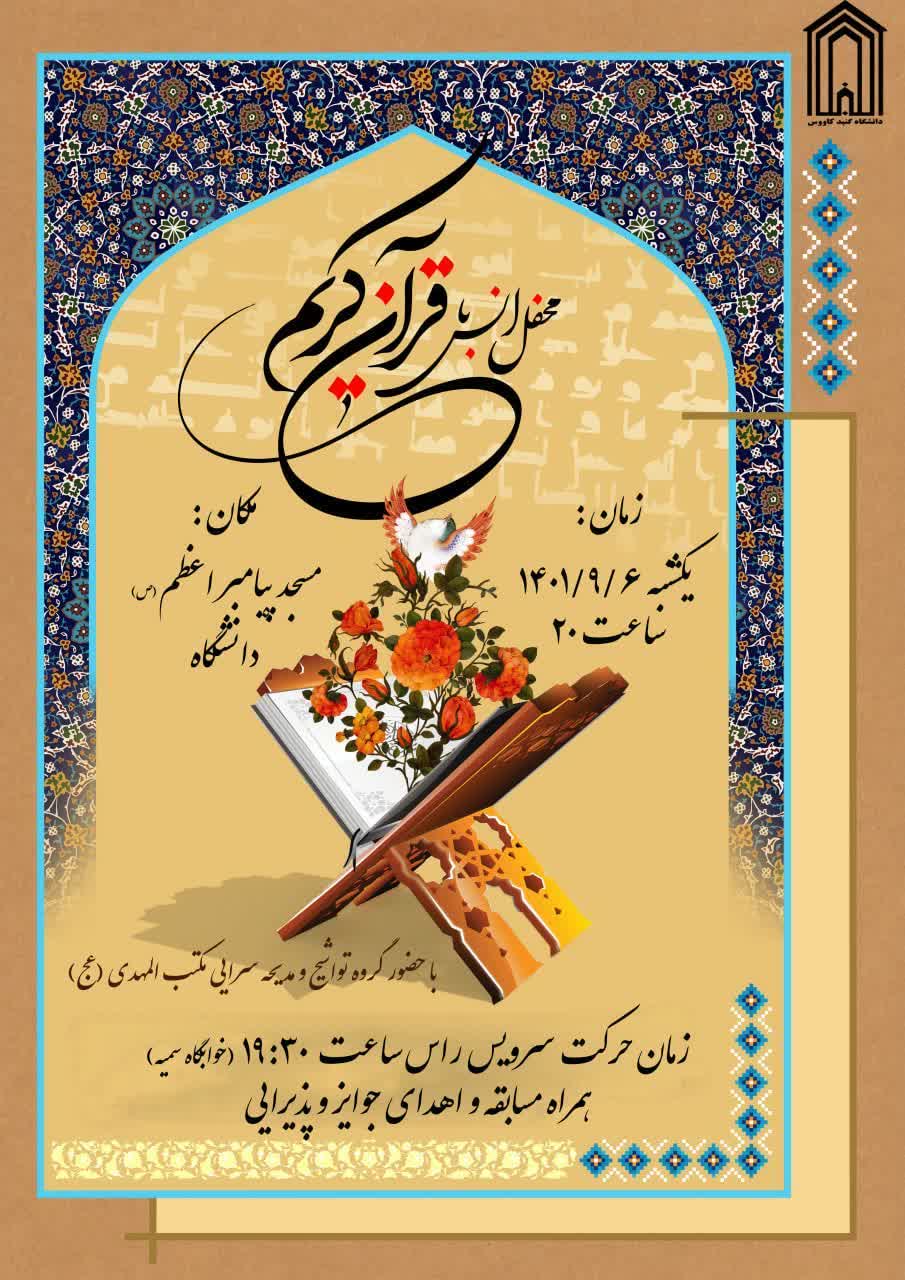 دانشگاه گنبد کاووس
محفل انس با قرآن کریم
زمان :
یکشنبه ۱۴۰۱/۹/۶
ساعت ۲۰
مکان :
مسجد پیامبر اعظم (ص)
دانشگاه
با حضور گروه تواشیح و مدیحه سرایی مکتب المهدی (عج)
زمان حرکت سرویس راس ساعت ۱۹:۳۰ (خوابگاه سمیه)
همراه مسابقه و اهدای جوایز و پذیرایی